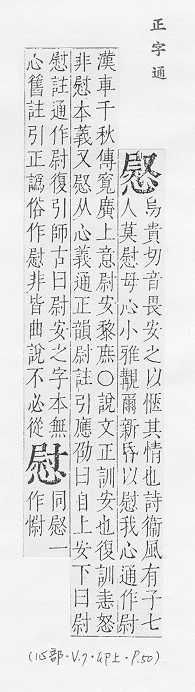 正字通
慰
烏貴切音畏安之以愜其情也詩衞風有子七
人莫慰母心小雅覯爾新昏以慰我心通作尉
漢車千秋傳寬廣上意尉安黎庶○說文正訓安也復訓恚怒
非慰本義又慰从心義通正韻尉註引應劭曰自上安下曰尉
慰註通作尉復引師古曰尉安之字本無
心舊註引正譌俗作慰非皆曲說不必從
慰
同慰一
作
(心部·V.7·卯上·P.50)